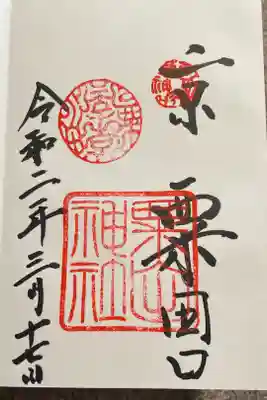 京
粟田口
粟田神社
令和二年三月十七日